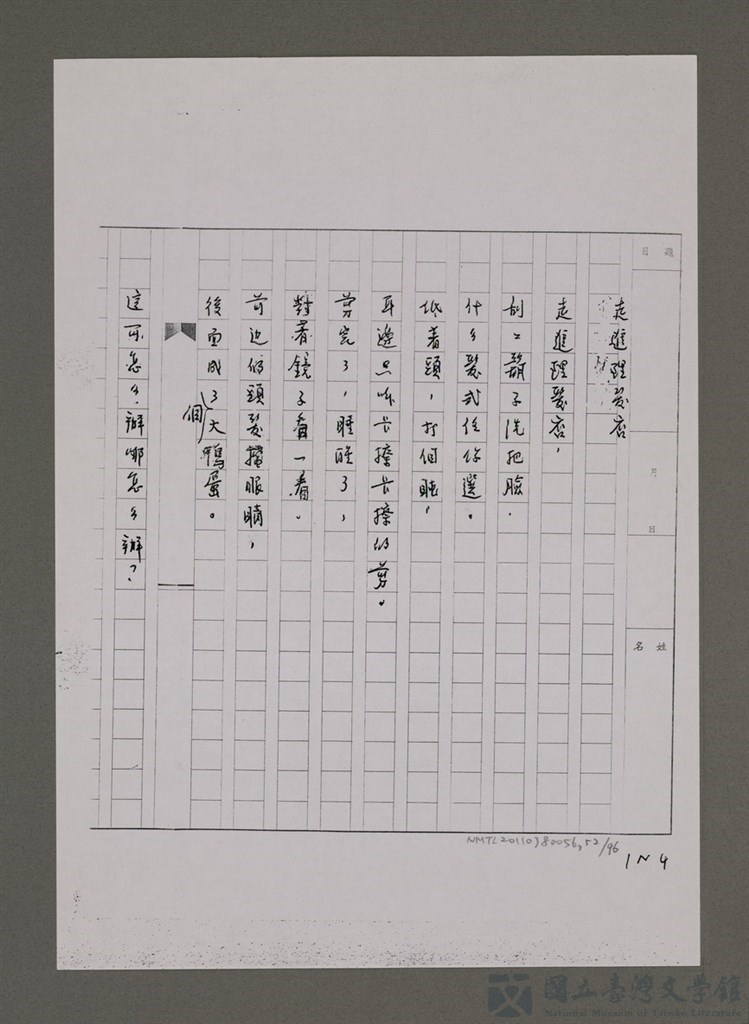 題目
月 日
姓名
走進理发店
走進理髮店，
刮刮鬍子洗把臉．
什么髮式任你選。
低着頭，打個盹，
耳邊只听卡擦卡擦的剪。
剪完了，睡醒了，
對着鏡子看一看。
前边的頭髮擋眼睛，
後面成了個大鴨蛋。
這可怎么辦哪怎么辦？
NMTL20110380056,52/96
1~4
國立臺灣文學館
National Museum of Taiwan Literature